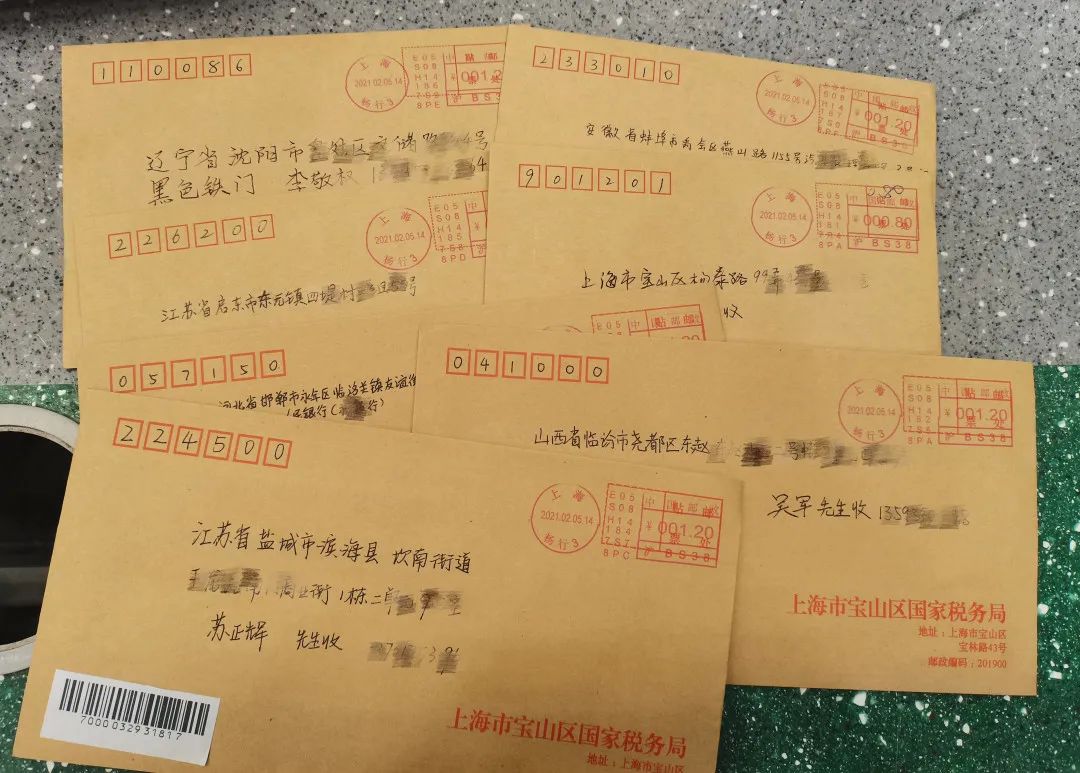 110086
上海
2021.02.05.14
杨行3
E05
S08
H14
186
8PE
中
贴邮
¥001.2
票处
沪 BS3
辽宁省沈阳市
号
黑色铁门 李敬权 1
4
233010
上海
2021.02.05.14
杨行3
E05
S08
H14
187
8PF
中国邮政
贴邮
¥001.20
票处
沪 BS38
安徽省蚌埠市禹会区燕山路1155号
901201
上海
2021.02.05.14
杨行3
E05
S08
H14
181
8PA
0.80
中国邮政
贴邮
¥000.80
票处
沪 BS38
上海市宝山区杨泰路99弄
收
226200
上海
2021.02.05.14
杨行3
E05
S08
H14
185
758
8PD
中
¥
沪
江苏省启东市东元镇四堤村
号
057150
E05
S08
中国邮政
贴邮
¥001.20
河北省邯郸市永年区临洺关镇友谊街
银行(
行)
041000
上海
2021.02.05.14
杨行3
E05
S08
H14
182
8PA
中国邮政
贴邮
¥001.20
票处
沪 BS38
山西省临汾市尧都区东赵
二号楼
吴军先生收 1359
上海市宝山区国家税务局
地址:上海市宝山区
宝林路43号
邮政编码:201900
224500
上海
2021.02.05.14
杨行3
E05
S08
H14
184
757
8PC
中国邮政
贴邮
¥001.20
票处
沪 BS38
江苏省盐城市滨海县坎南街道
街1栋二单
苏正辉 先生收
7000032931817
上海市宝山区国家税务局
地址:上海市宝山区